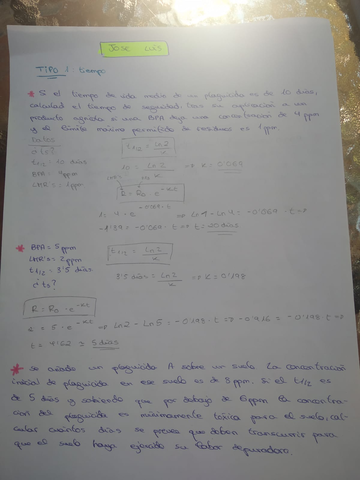 JOSE LUIS
TIPO 1: tiempo
* Si el tiempo de vida media de un plaguicida es de 10 días,
calculad el tiempo de seguridad para su aplicación a un
producto agrícola si una BPA deja una concentración de 4 ppm
y el límite máximo permitido de residuos es 1ppm
DATOS
t1/2 = ln2/k
t1/2 = 10 días
10 = ln2/k => k = 0'069
BPA = 4ppm
LMR = 1ppm
R = R0 · e^-kt
1 = 4 · e^-0'069·t => ln1 - ln4 = -0'069 · t =>
-1'39 = -0'069 · t => t = 20 días
* BPA = 5ppm
LMR = 2ppm
t1/2 = ln2/k
t1/2 = 3'5 días
¿ts?
3'5 días = ln2/k => k = 0'198
R = R0 · e^-kt
2 = 5 · e^-kt => ln2 - ln5 = -0'198 · t => -0'916 = -0'198 · t
t = 4'62 ≅ 5 días
* Se añade un plaguicida A sobre un suelo. La concentración
inicial de plaguicida en ese suelo es de 8 ppm. Si el t1/2 es
de 5 días y sabiendo que por debajo de 6ppm la concentra-
ción del plaguicida es mínimamente tóxica para el suelo, cal-
cular cuántos días se prevee que deben transcurrir para
que el suelo haya ejercido su labor depuradora.